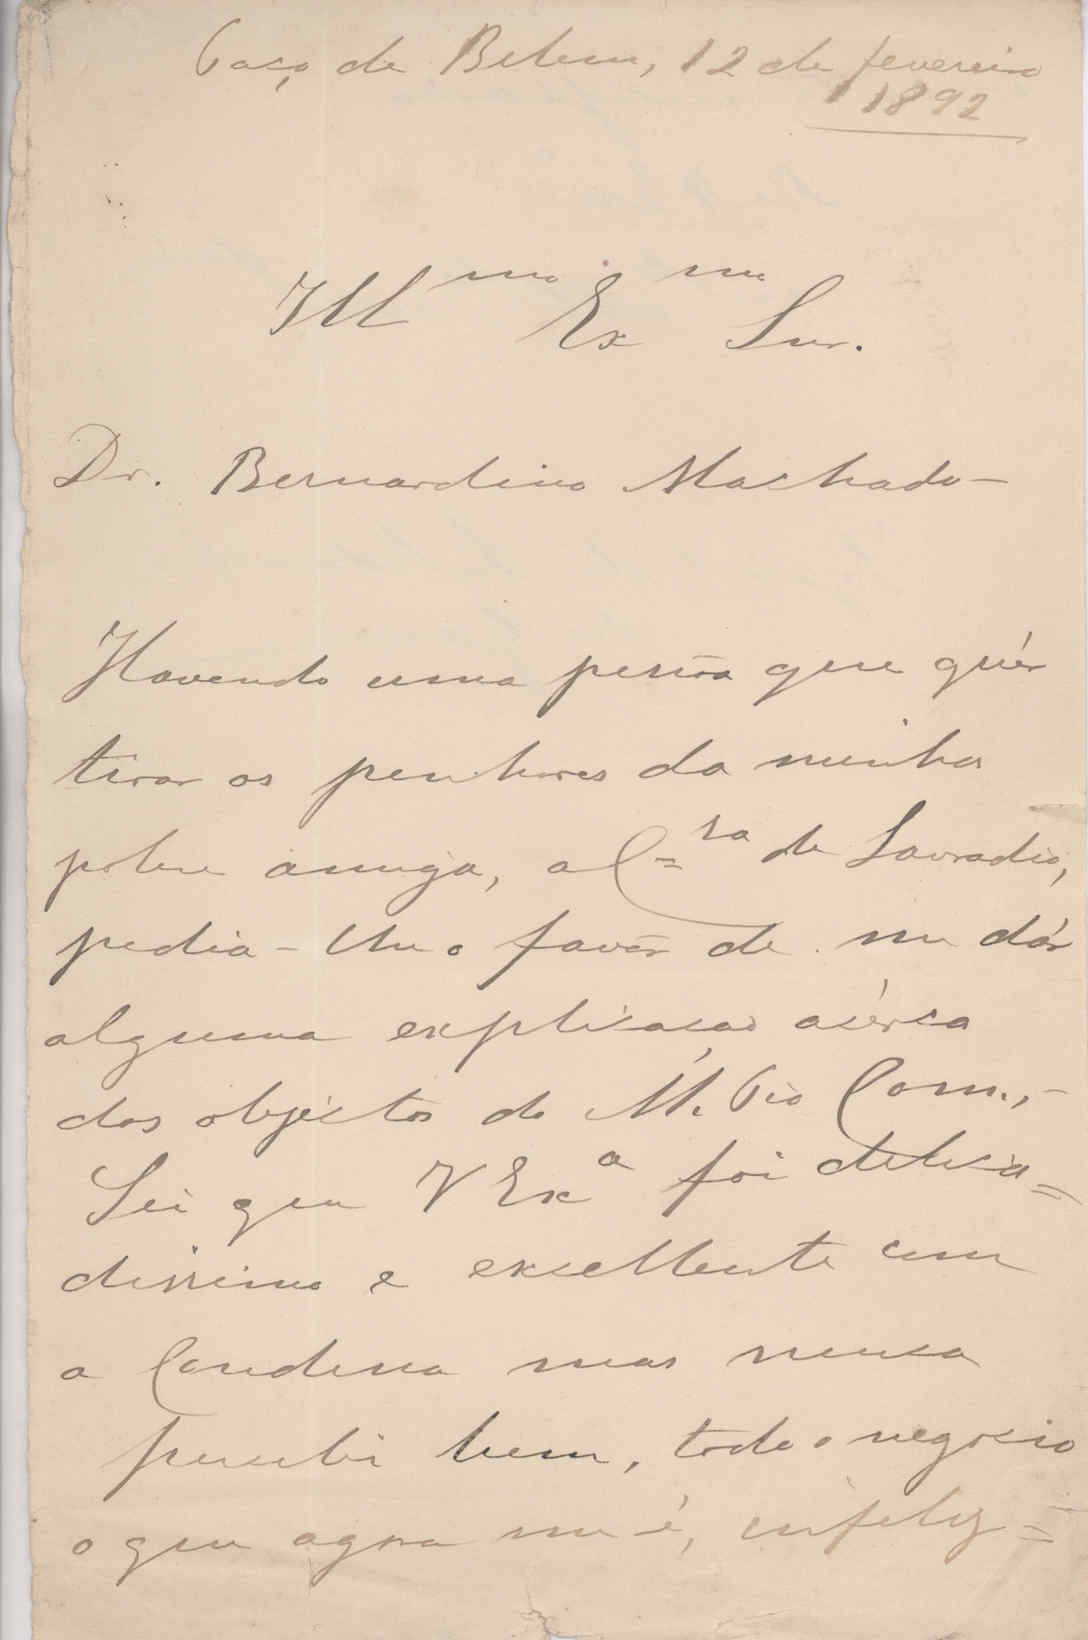 Paço de Belem, 12 de fevereiro
1892
Ill^mo Ex^mo Snr.
Dr. Bernardino Machado -
Havendo uma pessôa que quér
tirar os penhores da minha
pobre amiga, a C=^ssa de Lavradio,
pedia-lhe o favôr de me dár
alguma explicação ácêrca
dos objéctos do M. Pio Com.,-
Sei que V Ex^a foi delica=
dissimo e excellente com
a Condessa mas nunca
percebi bem, todo o negocio
o que agora me é, infeliz=